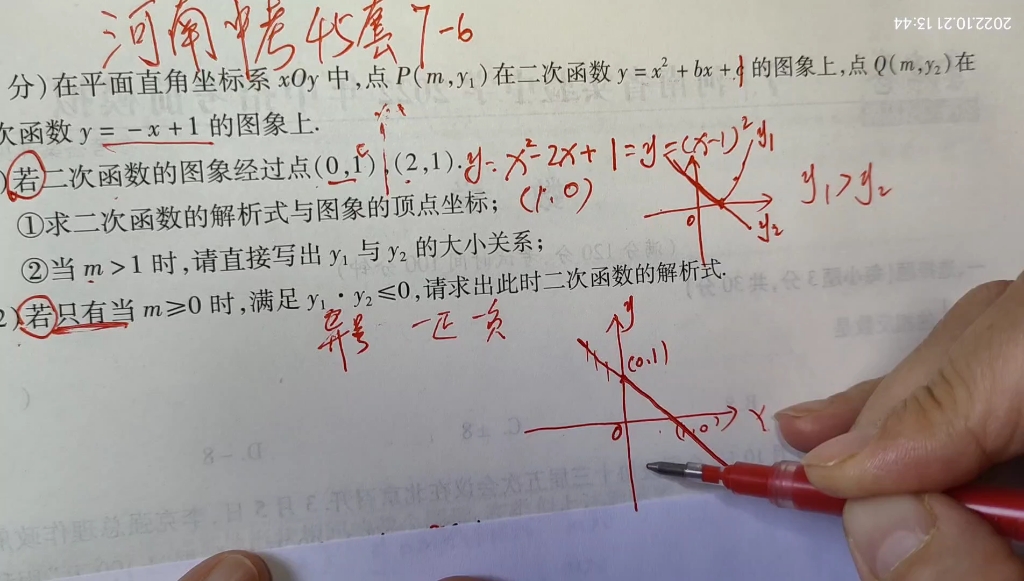 2022.10.21 13:44
河南中考45套7-6
分)在平面直角坐标系xOy中,点P(m,y₁)在二次函数y=x²+bx+c的图象上,点Q(m,y₂)在
次函数y=-x+1的图象上.
)若二次函数的图象经过点(0,1),(2,1). y=x²-2x+1=y=(x-1)² y₁
①求二次函数的解析式与图象的顶点坐标; (1,0) 0 y₂ y₁>y₂
②当m>1时,请直接写出y₁与y₂的大小关系;
2)若只有当m≥0时,满足y₁·y₂≤0,请求出此时二次函数的解析式.
异号 一正一负
y
(0.1)
0 (1,0) x